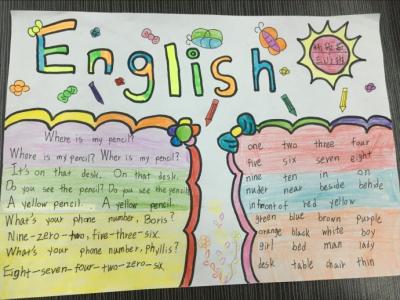 English
Where is my pencil?
Where is my pencil? Wher is my pencil?
It's on that desk. On that desk.
Do you see the pencil? Do you see the pencil
A yellow pencil. A yellow pencil.
What's your phone number, Boris?
Nine-zero-two, five-three-six.
What's your phone number, Phyllis?
Eight-seven-four-two-zero-six.
one two three four
five six seven eight
nine ten in on
nuder near beside behide
infrontof red yellow
green blue brown purple
orange black white boy
girl bed man lady
desk table chair thin